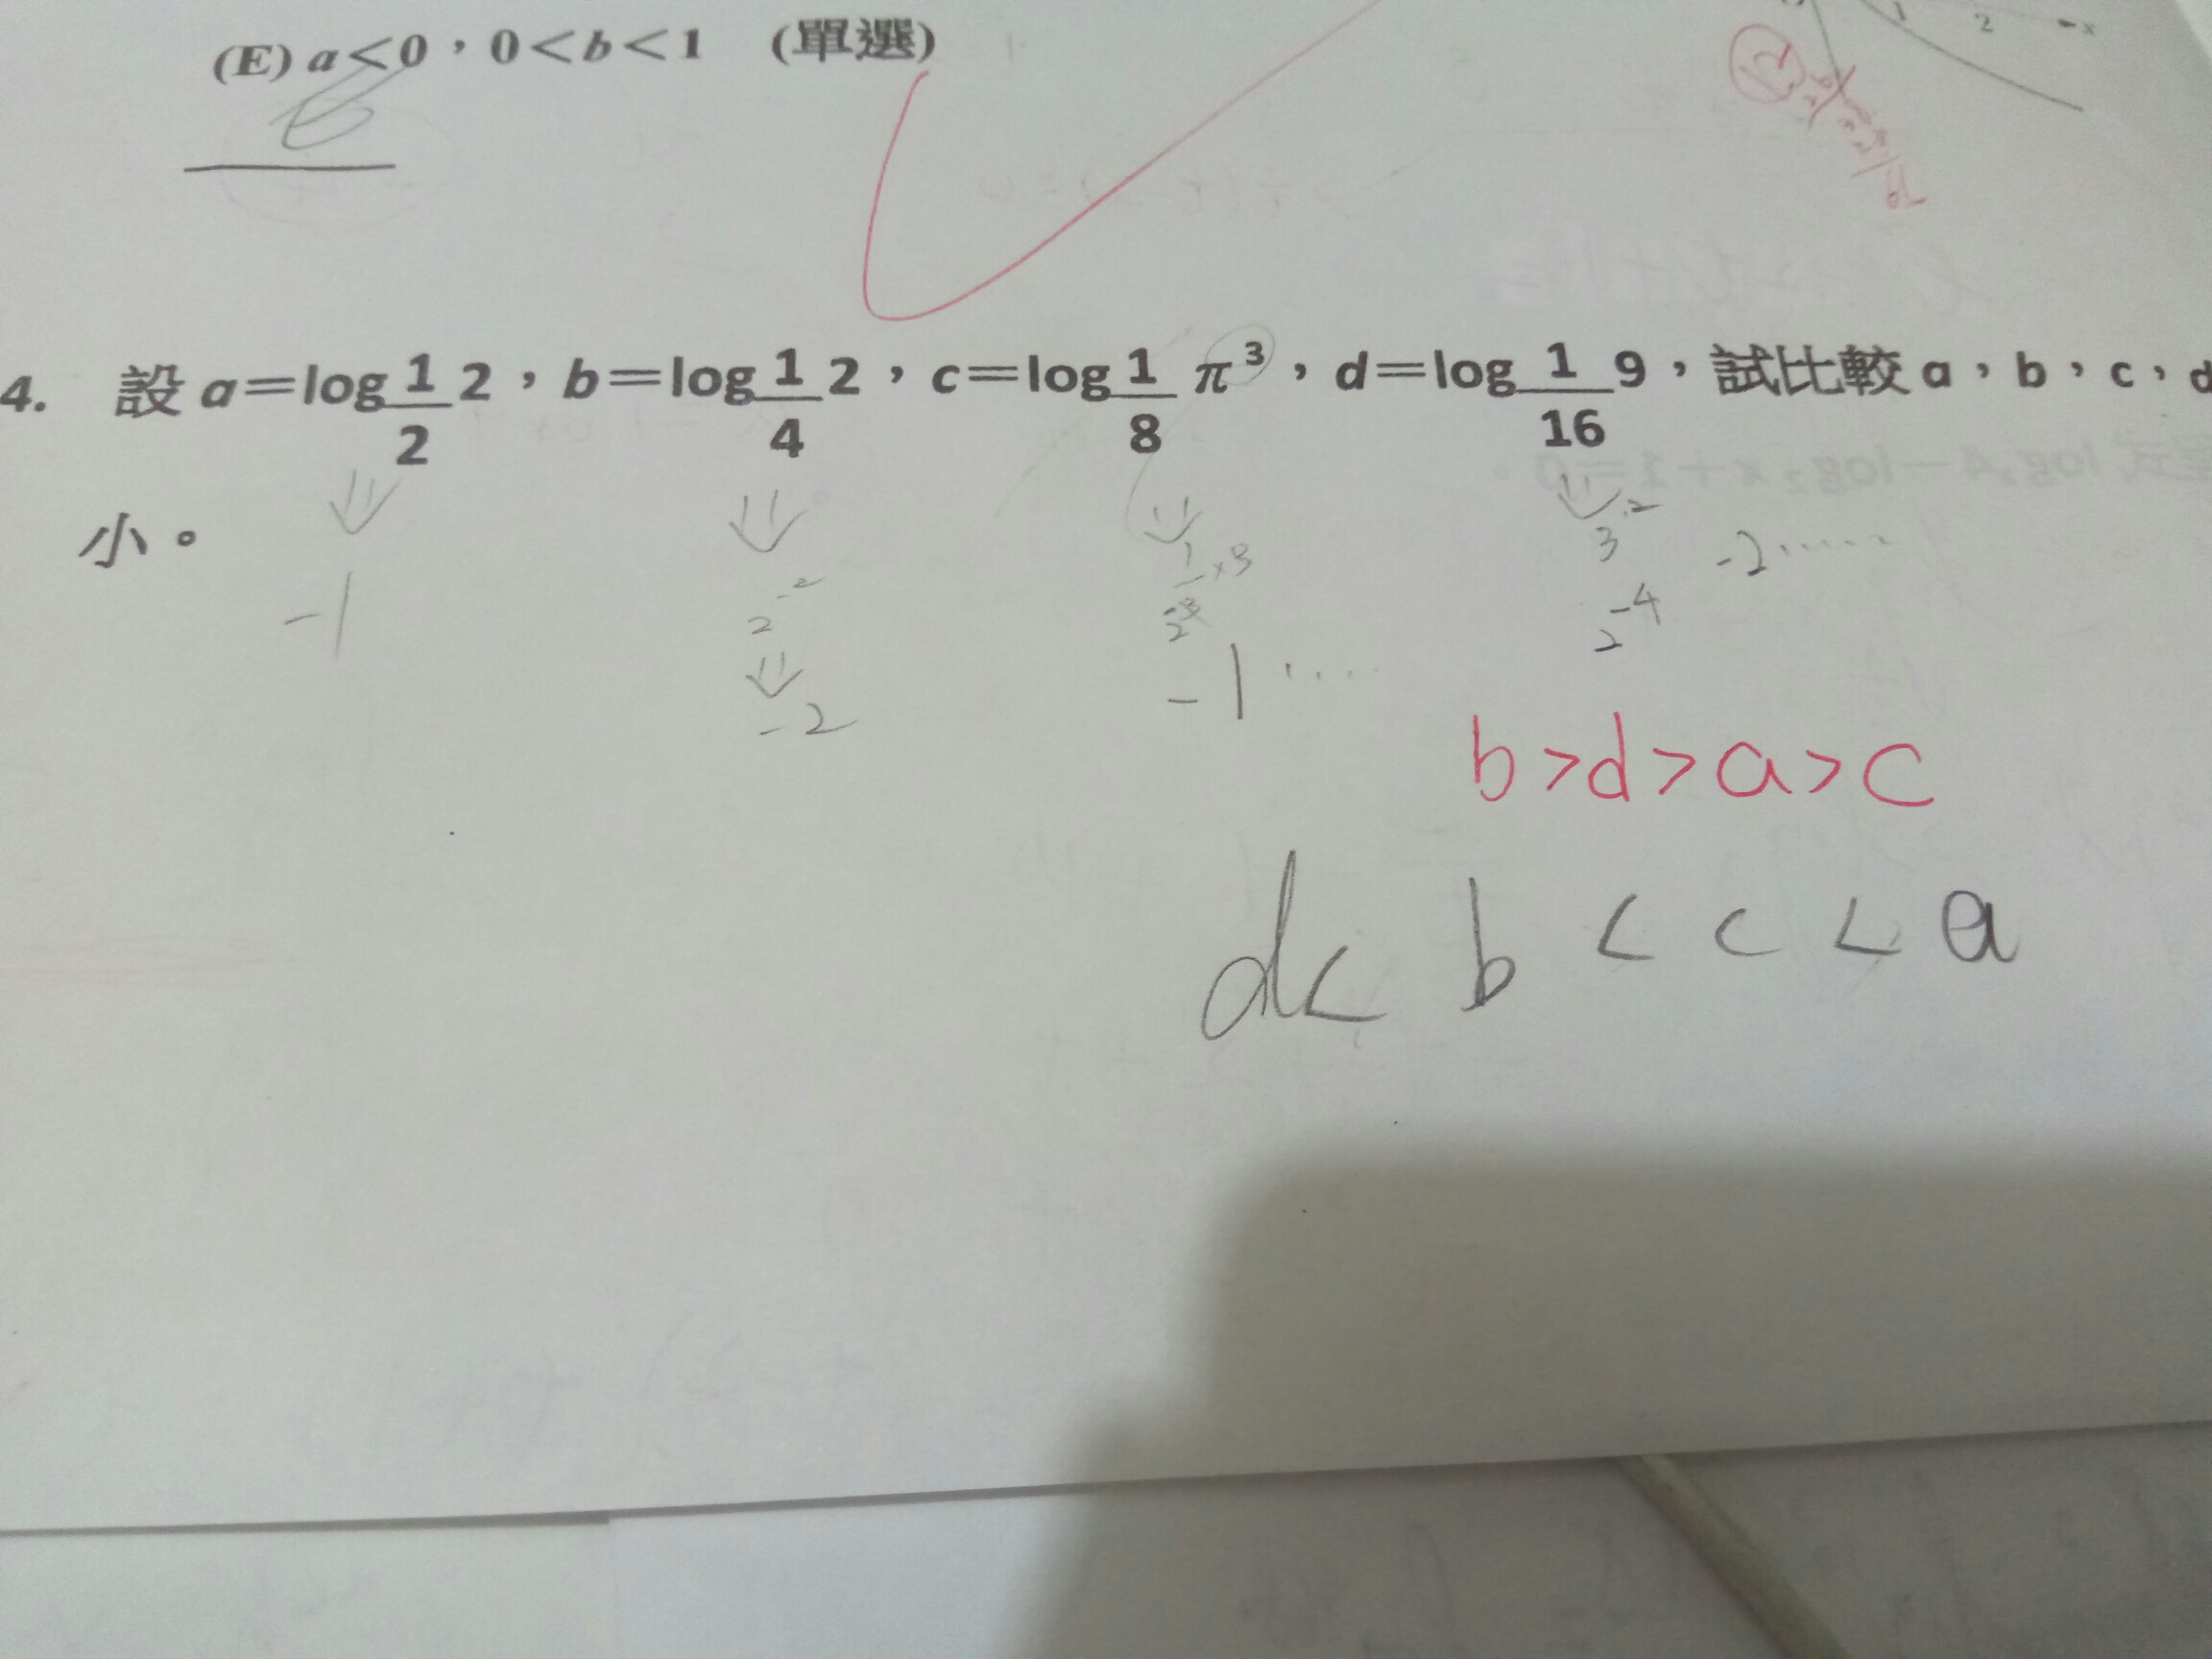 (E) a<0，0<b<1 (單選)
4. 設 a=log 1/2 2，b=log 1/4 2，c=log 1/8 π³，d=log 1/16 9，試比較 a，b，c，d
小。
-1
2⁻²
-2
-1 ....
3 -2.....
2⁻⁴
b>d>a>c
d< b < c < a